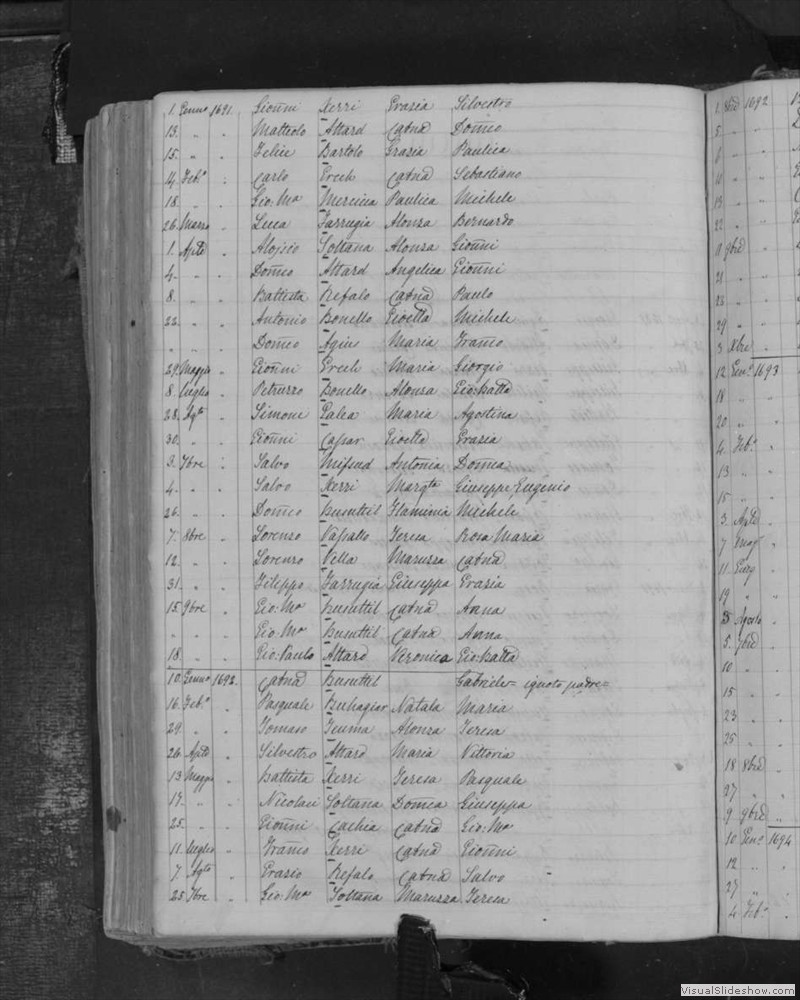 1. Genno 1691. Gioñni Xerri Grazia Silvestro
13. " " Matteolo Attard Catnã Doñico
15. " " Felice Bartolo Grazia Paulica
14. Feb.º " Carlo Ebreh Catnã Sebastiano
18. " " Gio: Mª Mercieca Paulica Michele
26. Marzo " Luca Farrugia Alonza Bernardo
1. Aple " Alojsio Soltana Alonza Gioñni
4. " " Doñico Attard Angelica Gioñni
8. " " Battista Refalo Catnã Paulo
22. " " Antonio Bonello Gioetta Michele
" " " Doñico Agius Maria Franco
29. Maggio " Gioñni Ebreh Maria Giorgio
8. Luglio " Petruzzo Bonello Alonza Gio:Batta
28. Agto " Simone Galea Maria Agostina
30. " " Gioñni Caspar Gioetta Grazia
3. 7bre " Salvo Mifsud Antonia Doñica
4. " " Salvo Xerri Margta Giuseppe Eugenio
26. " " Doñico Busuttil Flaminia Michele
7. 8bre " Lorenzo Vassallo Teresa Rosa Maria
12. " " Lorenzo Vella Maruzza Catnã
31. " " Filippo Farrugia Giuseppa Grazia
15. 9bre " Gio: Mª Busuttil Catnã Anna
" " " Gio: Mª Busuttil Catnã Anna
18. " " Gio: Paulo Attard Veronica Gio:Batta
10. Genno 1692. Catnã Busuttil Gabriele= ignoto padre=
16. Feb.º " Pasquale Buhagiar Natala Maria
29. " " Tomaso Teuma Alonza Teresa
26. Aple " Silvestro Attard Maria Vittoria
13 Maggio " Battista Xerri Teresa Pasquale
17. " " Nicolau Soltana Domca Giuseppa
25. " " Gioñni Cachia Catnã Gio: Mª
11. Luglio " Franco Xerri Catnã Gioñni
7. Agto " Grazio Refalo Catnã Salvo
25 7bre " Gio: Mª Soltana Maruzza Teresa
1. 8bre 1692
5 " "
" "
" "
" "
22 " "
9bre "
21 " "
" "
29 " "
3 Xbre "
12 Gen.º 1693
18 " "
20 " "
4 Feb.º "
13 " "
15 " "
3. Aple "
7 Mag "
11 Giug "
19 " "
Agosto "
5. 7bre "
10 " "
15 " "
23 " "
25 " "
18 8bre "
27 " "
9 9bre "
10 Gen.º 1694
12 " "
27 " "
4 Feb.º "
VisualSlideshow.com